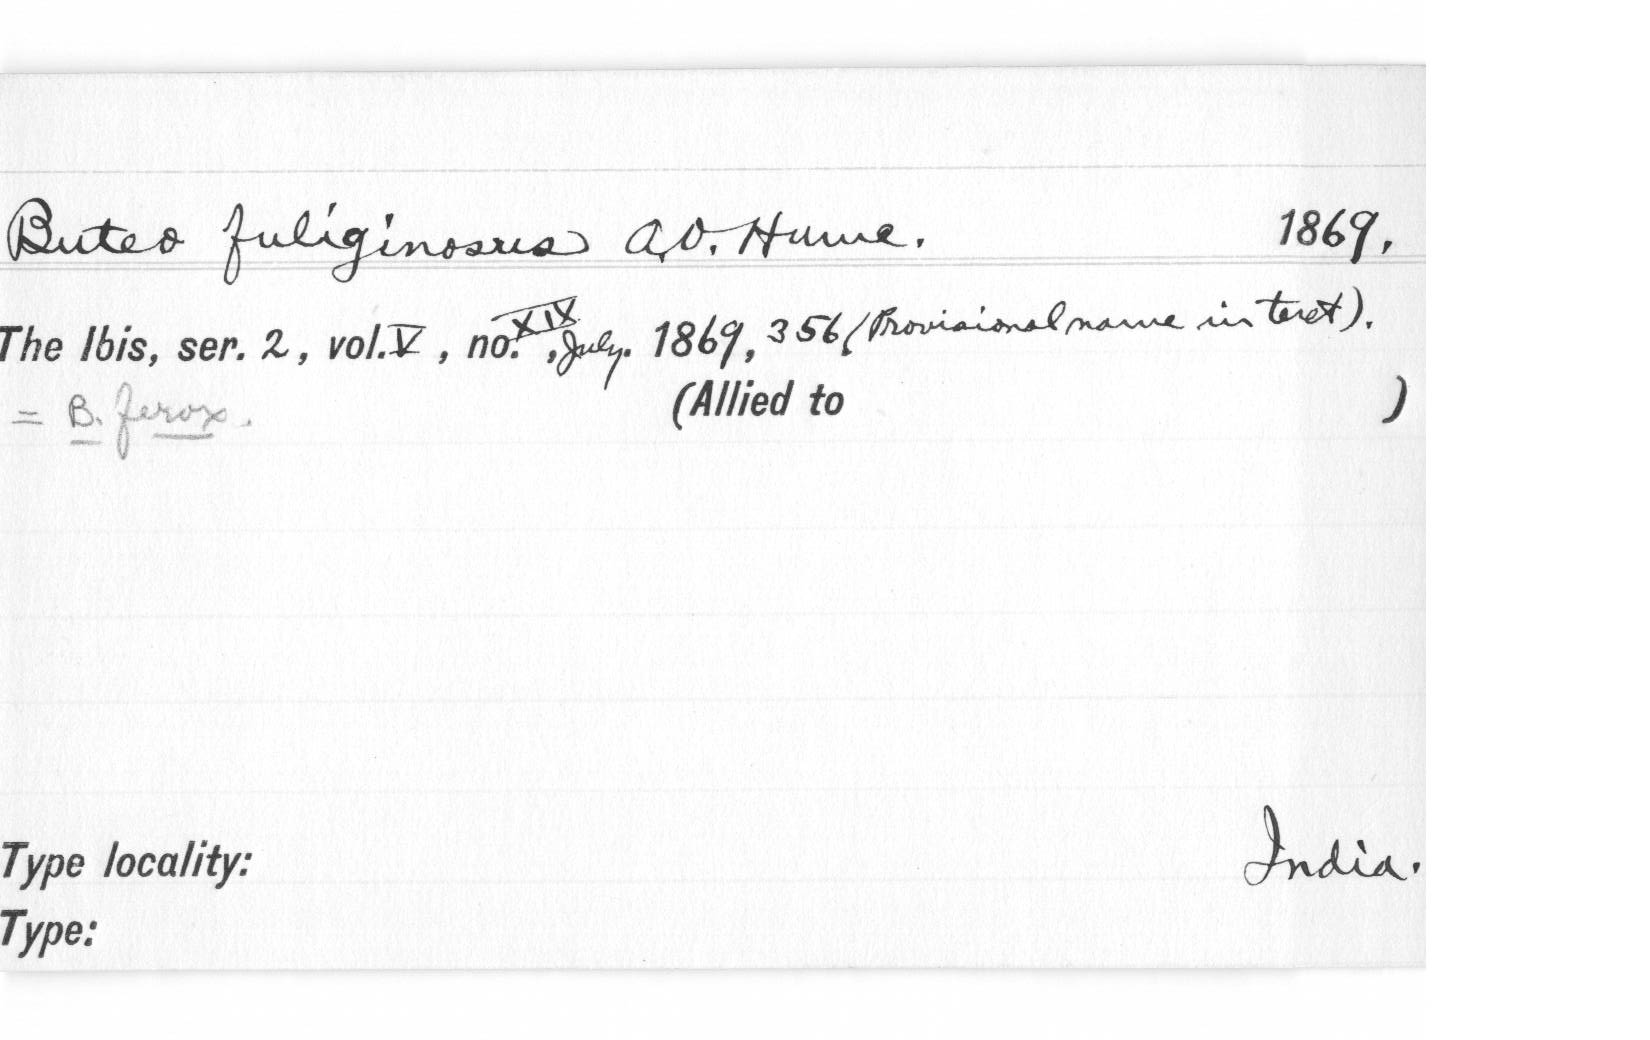 Buteo fuliginosus A.O. Hume. 1869.
The Ibis, ser. 2, vol. V, no. XIX, July. 1869, 356 (Provisional name in text).
= B. ferox. (Allied to )
Type locality: India.
Type: